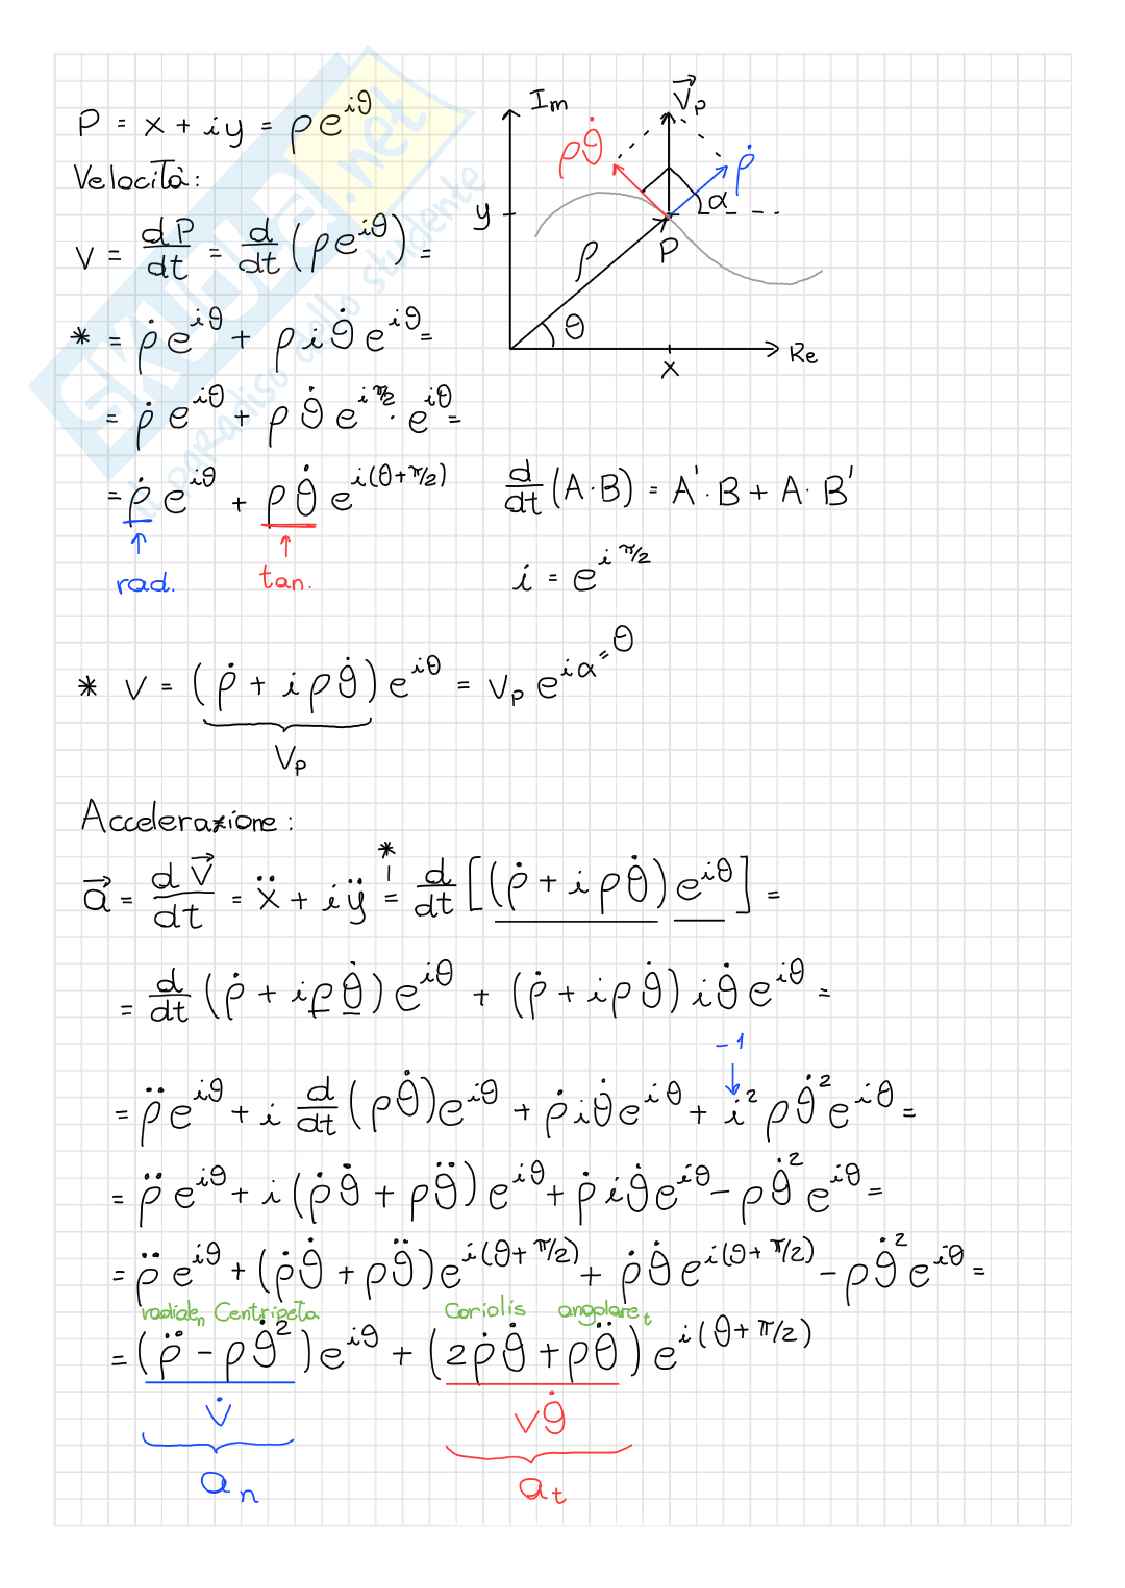 P = x + iy = ρe^{iθ}
Velocità:
v = dP/dt = d/dt (ρe^{iθ}) =
* = ρ̇e^{iθ} + ρiθ̇e^{iθ} =
= ρ̇e^{iθ} + ρθ̇e^{iπ/2} · e^{iθ} =
= ρ̇e^{iθ} + ρθ̇e^{i(θ+π/2)}
↑ ↑
rad. tan.
Im
V⃗p
ρθ̇
ρ̇
α
y
ρ
P
θ
x
Re
d/dt (A·B) = A'·B + A·B'
i = e^{iπ/2}
* v = (ρ̇ + iρθ̇)e^{iθ} = Vp e^{iα=θ}
Vp
Accelerazione:
*
a⃗ = dV⃗/dt = ẍ + iÿ = d/dt [(ρ̇ + iρθ̇)e^{iθ}] =
= d/dt (ρ̇ + iρθ̇)e^{iθ} + (ρ̇ + iρθ̇)iθ̇e^{iθ} =
-1
= ρ̈e^{iθ} + i d/dt (ρθ̇)e^{iθ} + ρ̇iθ̇e^{iθ} + i²ρθ̇²e^{iθ} =
= ρ̈e^{iθ} + i(ρ̇θ̇ + ρθ̈)e^{iθ} + ρ̇iθ̇e^{iθ} - ρθ̇²e^{iθ} =
= ρ̈e^{iθ} + (ρ̇θ̇ + ρθ̈)e^{i(θ+π/2)} + ρ̇θ̇e^{i(θ+π/2)} - ρθ̇²e^{iθ} =
radiale n Centripeta Coriolis angolare t
= (ρ̈ - ρθ̇²)e^{iθ} + (2ρ̇θ̇ + ρθ̈)e^{i(θ+π/2)}
v̇ vθ̇
a_n a_t
SKUOLA.net
il paradiso dello studente